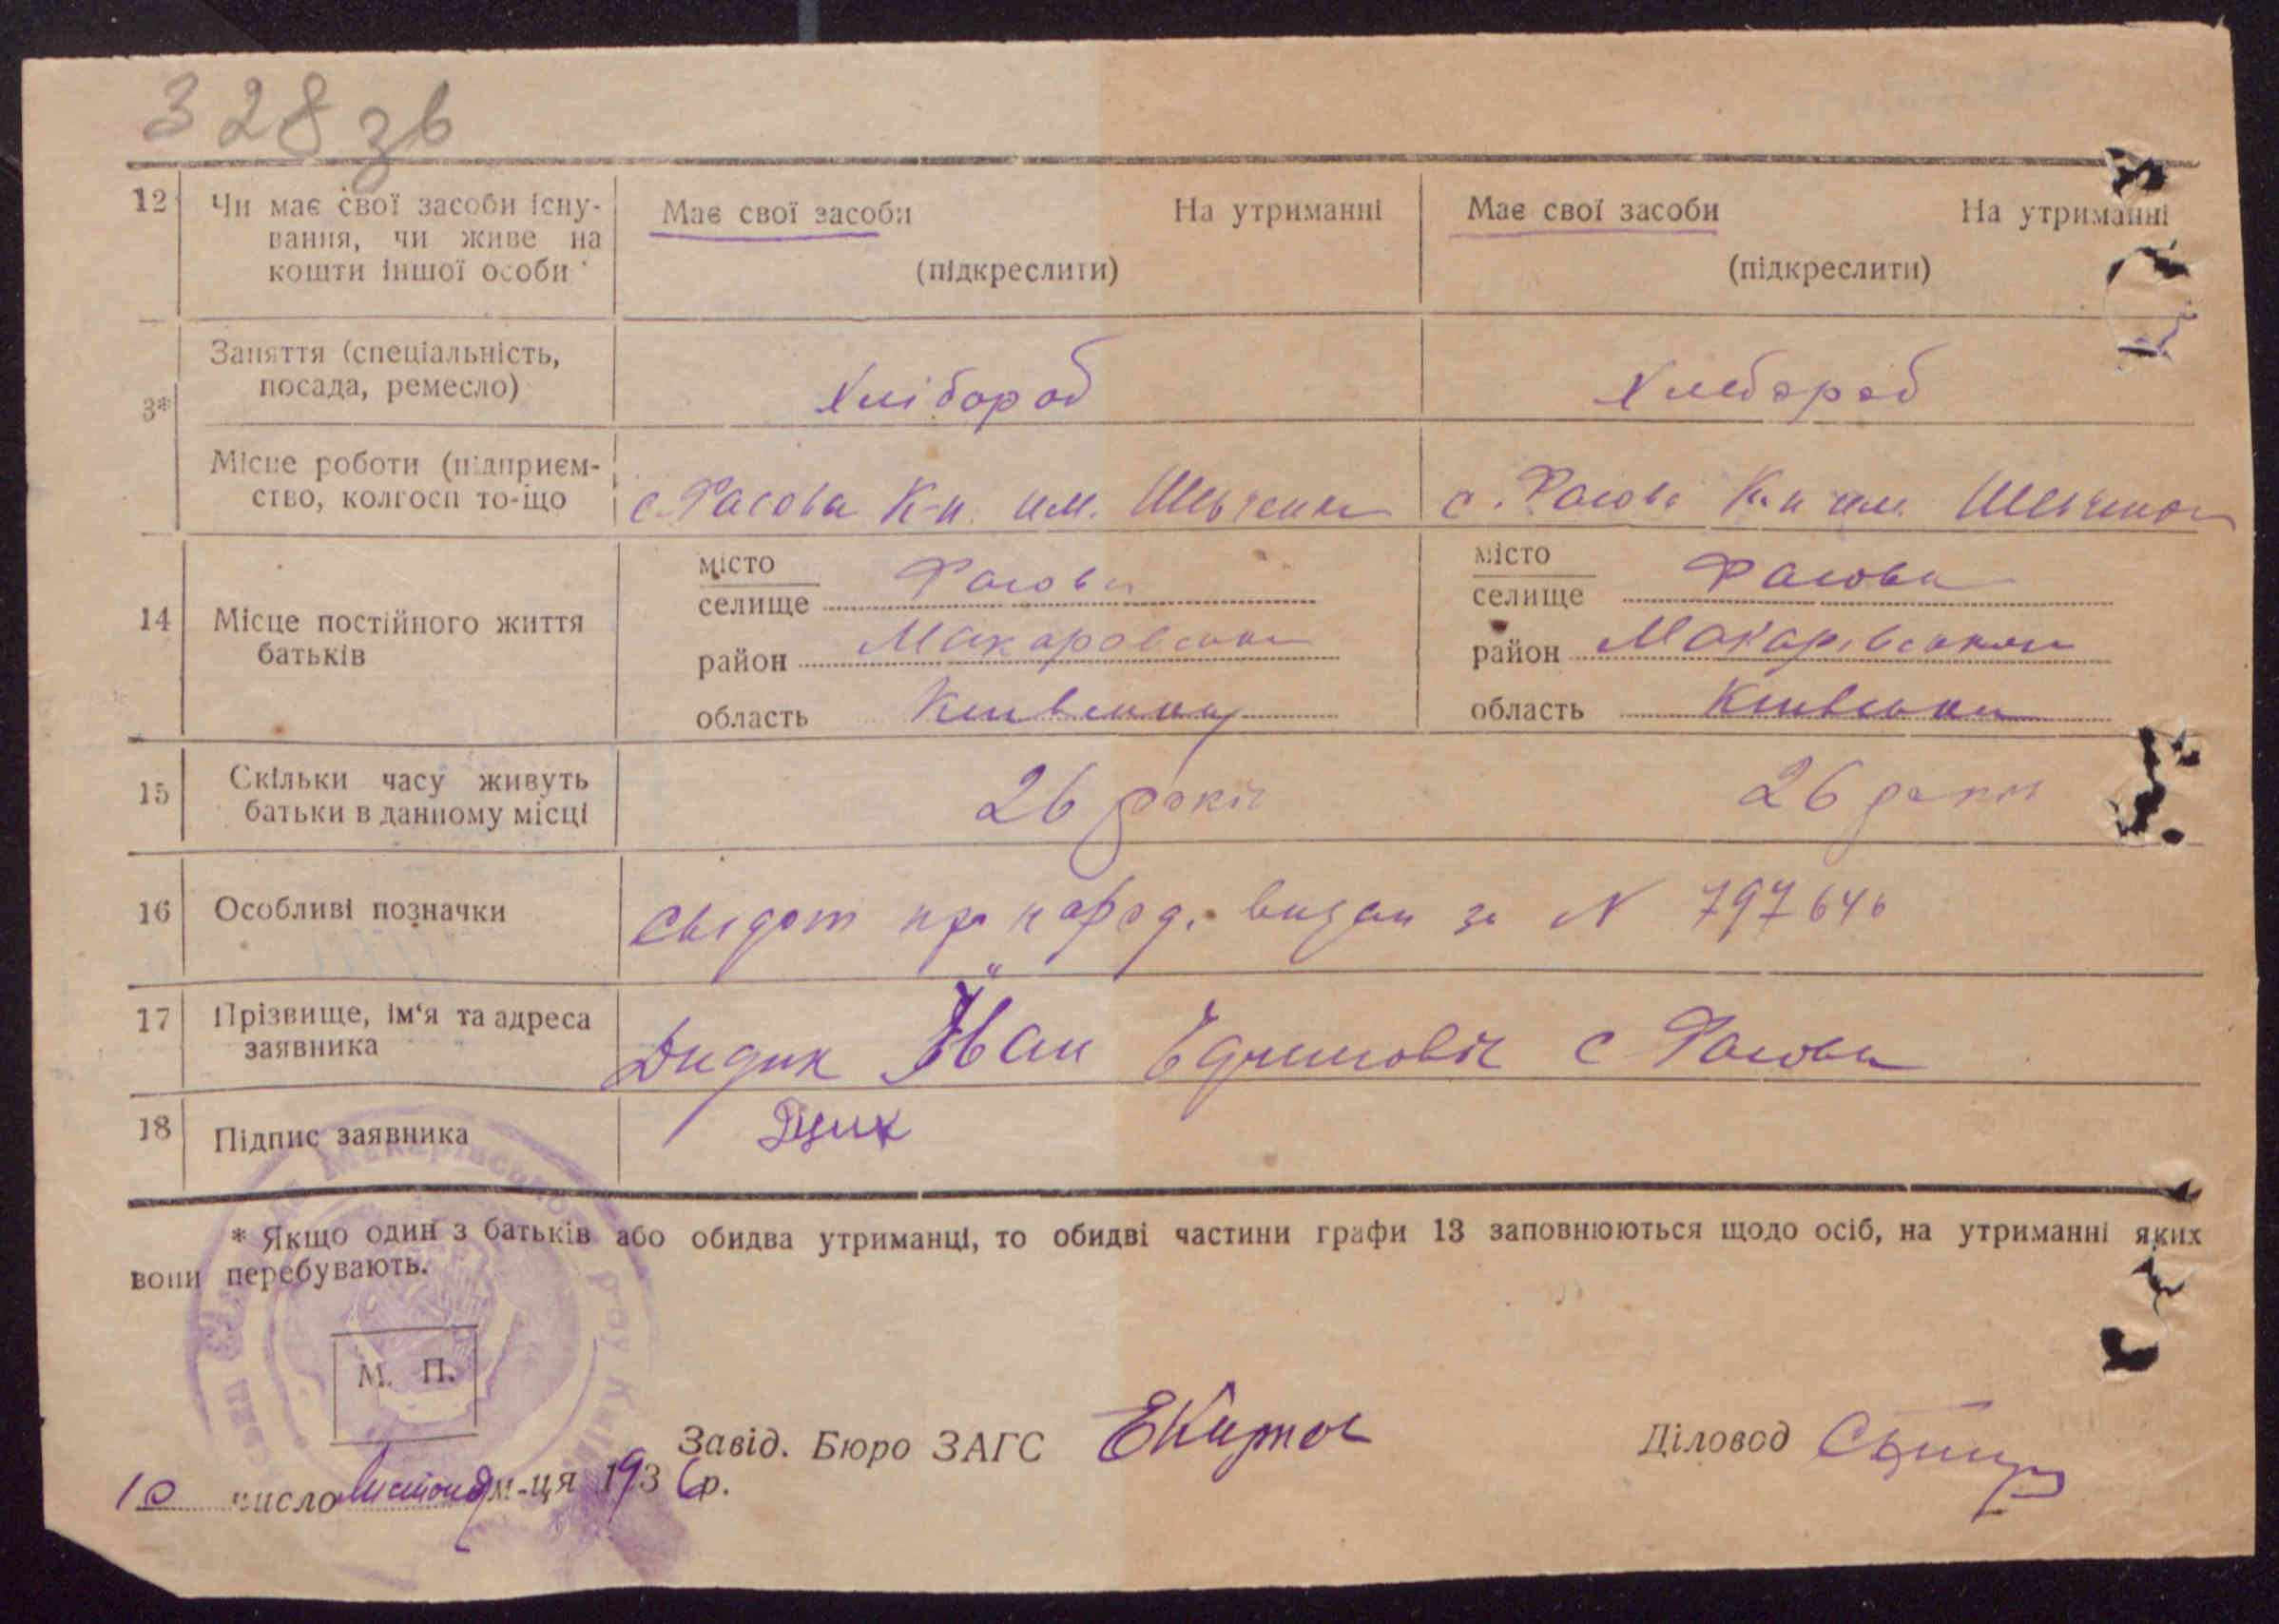 328 зв
12 Чи має свої засоби існу- Має свої засоби На утриманні Має свої засоби На утриманні
вання, чи живе на
кошти іншої особи (підкреслити) (підкреслити)
Заняття (спеціальність,
посада, ремесло) Хлібороб Хлебороб
3*
Місце роботи (підприєм-
ство, колгосп то-що с. Фасова К-п. им. Шевченка с. Фасова К-п им. Шевченка
місто місто
селище Фасова селище Фасова
14 Місце постійного життя
батьків район Макаровська район Макарівський
область Київська область Київська
15 Скільки часу живуть 26 років 26 років
батьки в данному місці
16 Особливі позначки Свідот про народ. видан за N 797646
17 Прізвище, ім'я та адреса
заявника Дидик Іван с Фасова
18 Підпис заявника
* Якщо один з батьків або обидва утриманці, то обидві частини графи 13 заповнюються щодо осіб, на утриманні яких
вони перебувають.
М. П.
Завід. Бюро ЗАГС Діловод
10 число листопад м-ця 1936 р.